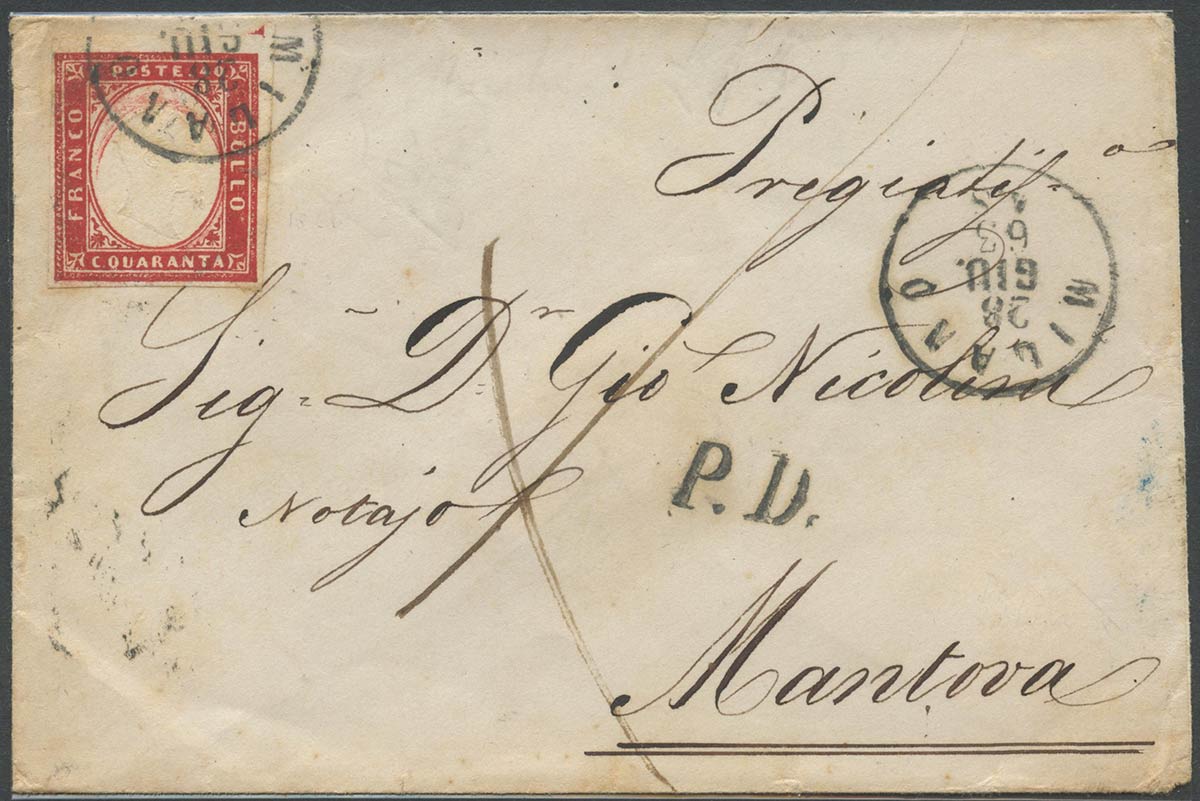 POSTE C. 40
FRANCO
BOLLO
C. QUARANTA
MILANO
28
GIU.
Pregiatis.o
MILANO
28
GIU.
63
Sig. Dr Gio Nicolini
Notajo
P.D.
Mantova